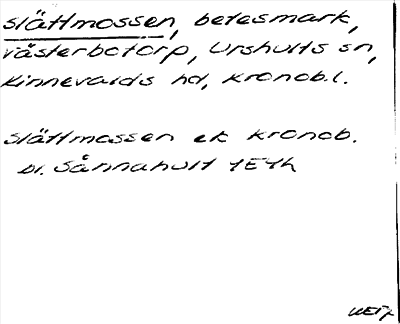 slättmossen, betesmark,
västerbotorp, Urshults sn,
Kinnevalds hd, Kronob.l.
slättmossen ek Kronob.
bl. Sånnahult 1E4h